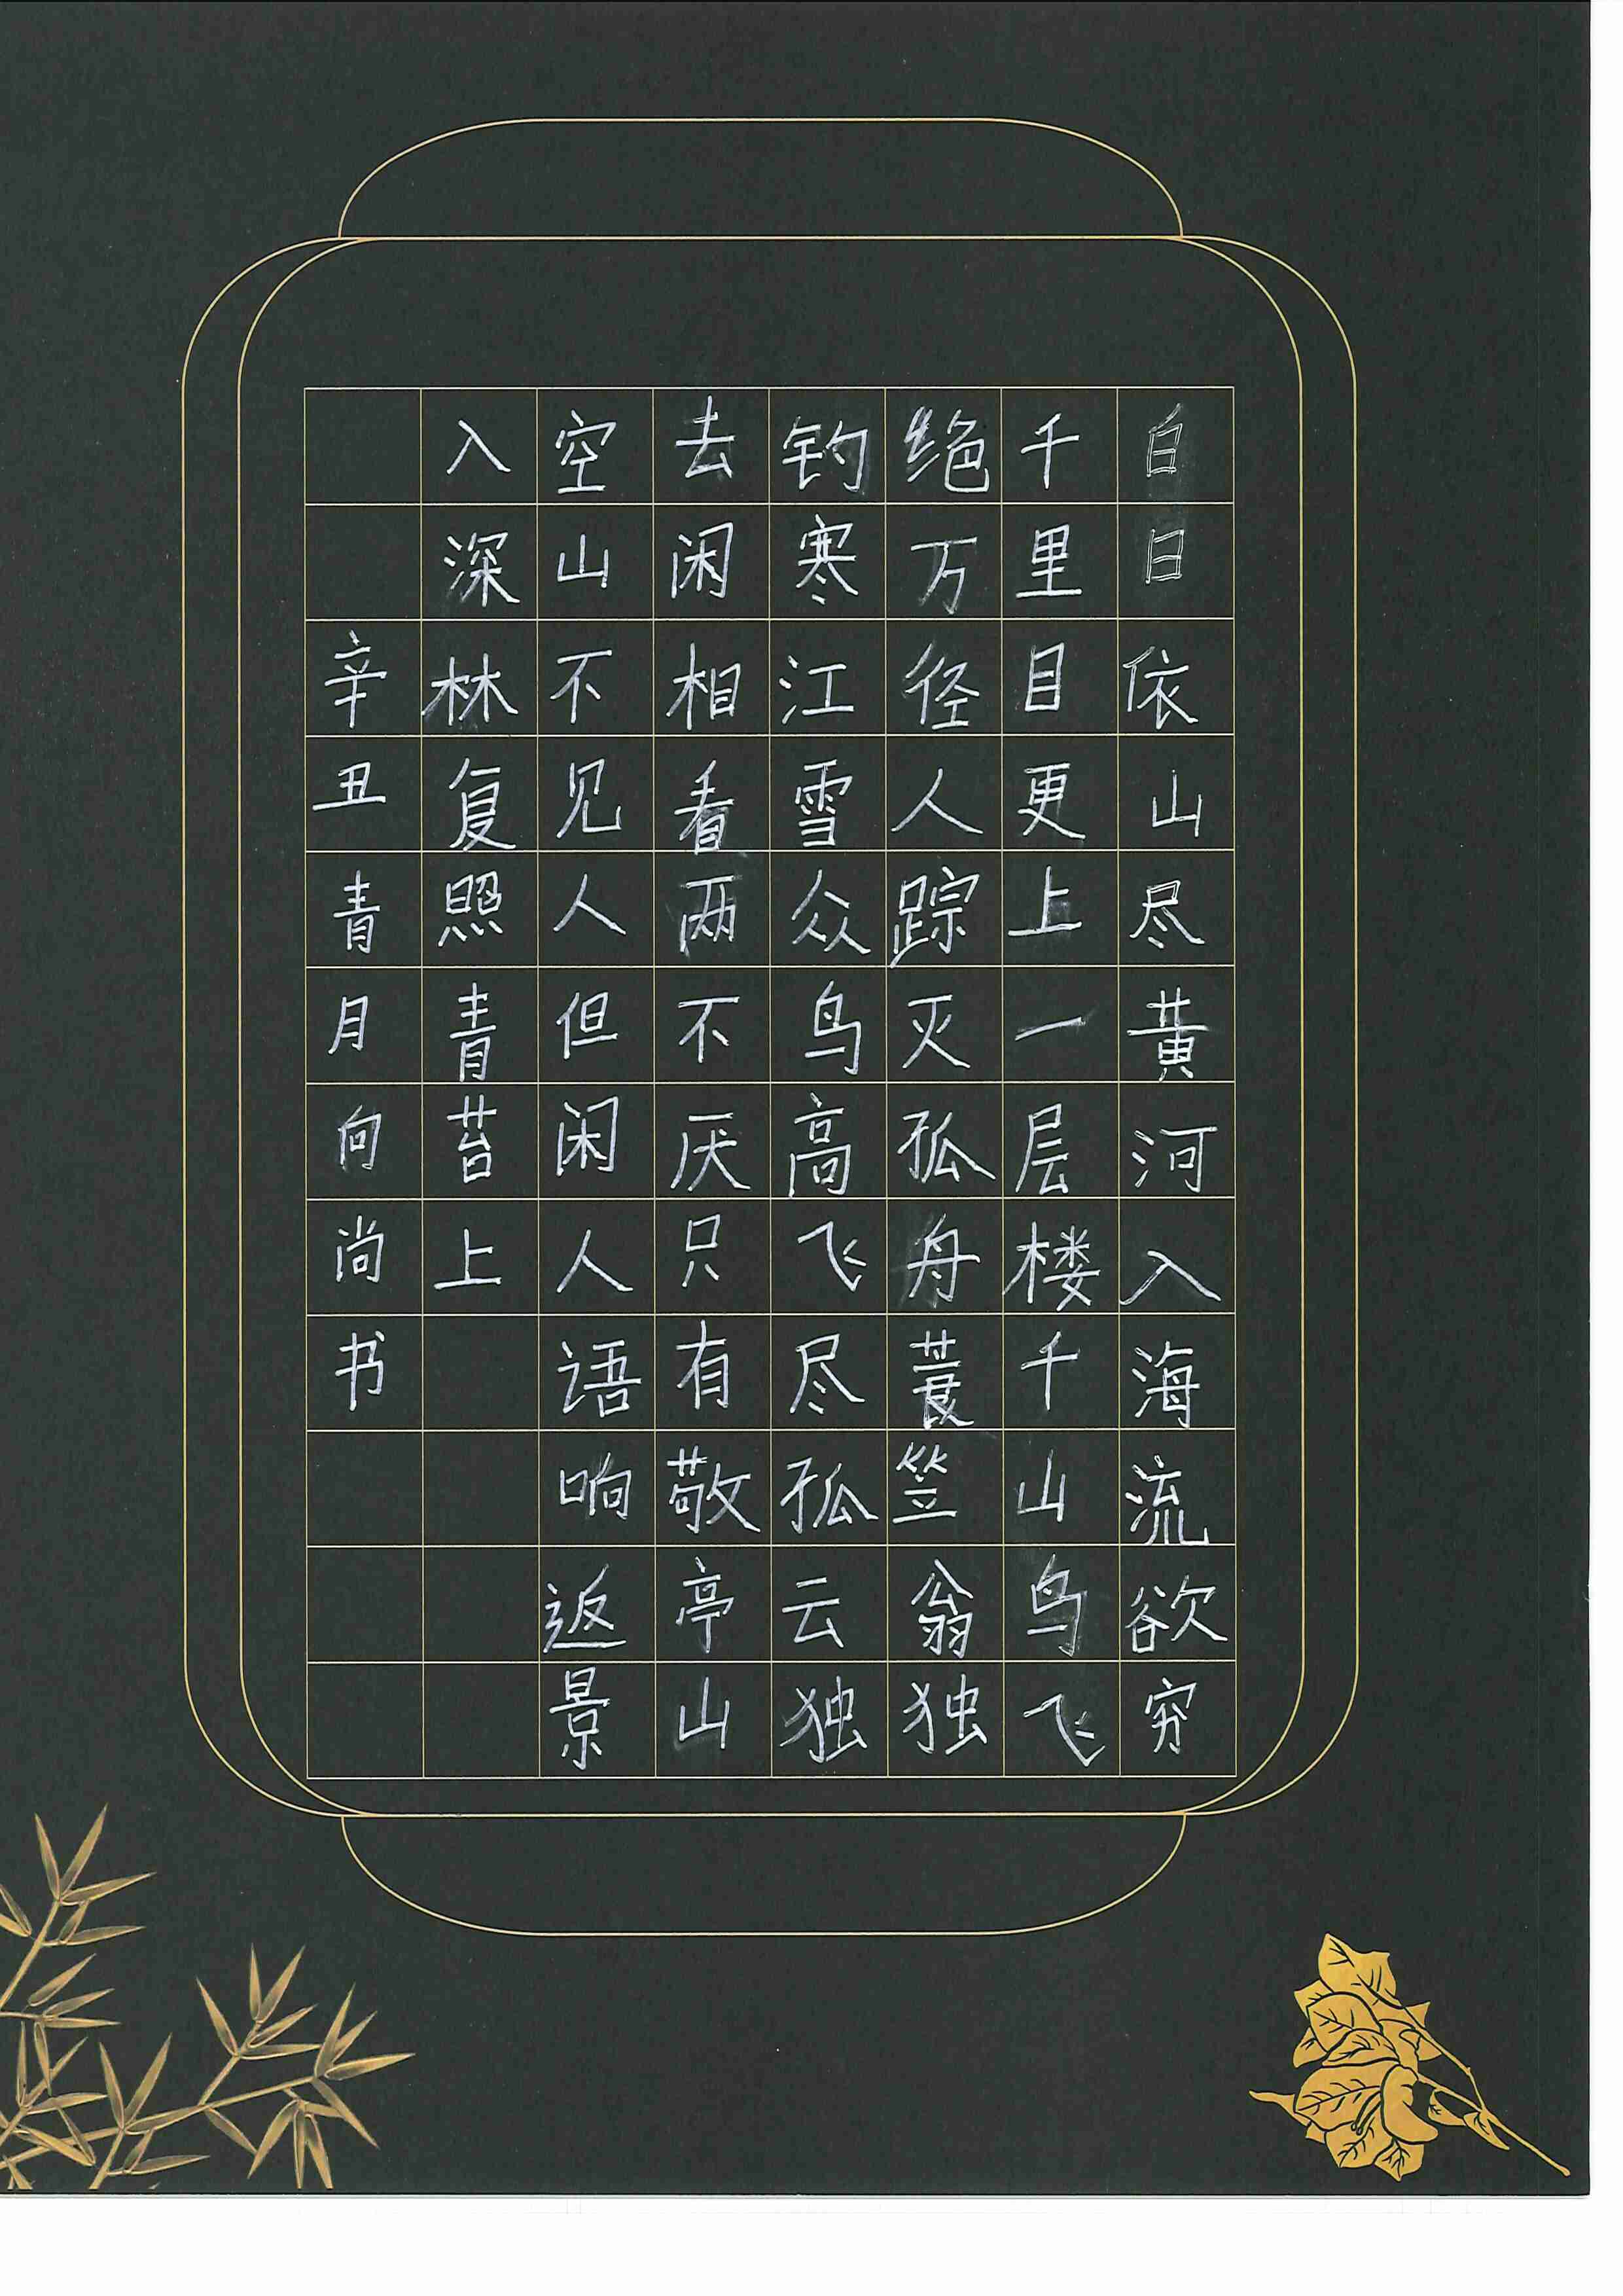 白日依山尽黄河入海流欲穷
千里目更上一层楼千山鸟飞
绝万径人踪灭孤舟蓑笠翁独
钓寒江雪众鸟高飞尽孤云独
去闲相看两不厌只有敬亭山
空山不见人但闲人语响返景
入深林复照青苔上
辛丑青月向尚书